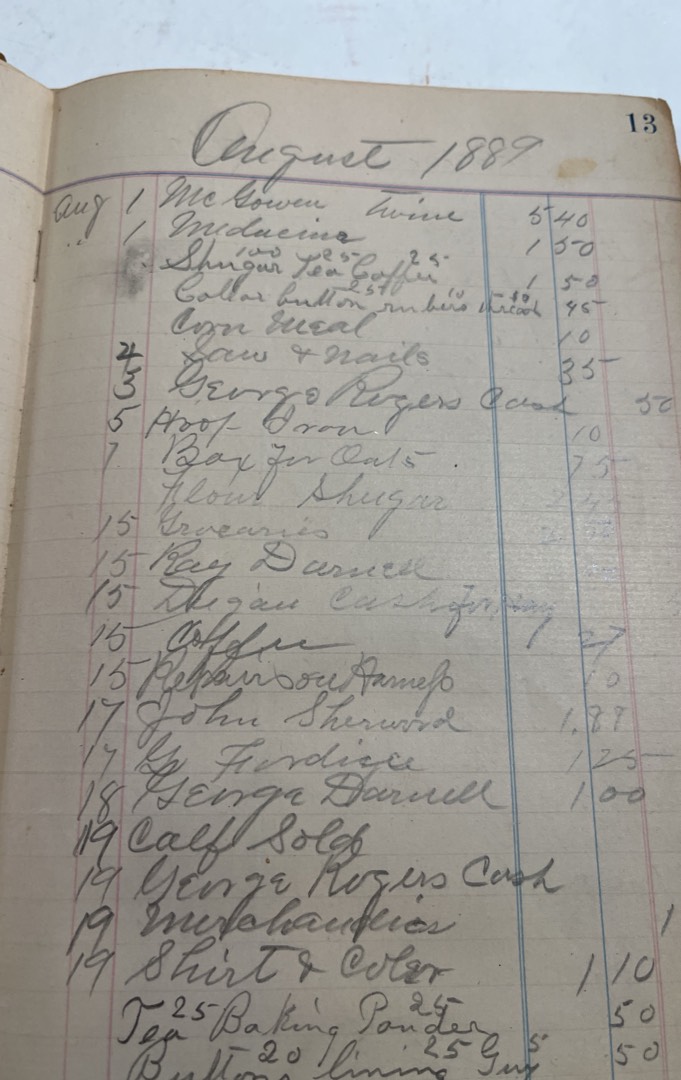 13
August 1889
Aug 1 McGowen Twine 5 40
" 1 Medecine 1 50
Shugar 100 Tea 25 Coffee 25 1 50
Collar button 25 rubers 10 thread 10 45
Corn Meal 10
4 Saw & nails 35
3 George Rogers Cash 50
5 Hoop Iron 10
7 Box for Oats 75
Flour Shugar
15 Groceries
15 Ray Darnell
15 Dugan Cash for
15 Coffee 1 27
15 Repairs on Harness 10
17 John Sherwood 1.87
17 Fordice 1 25
18 George Darnell 1 00
19 Calf Sold
19 George Rogers Cash
19 Merchandies 1
19 Shirt & Coler 1 10
Tea 25 Baking Pouder 25 50
Buttons 20 lining 25 5 50